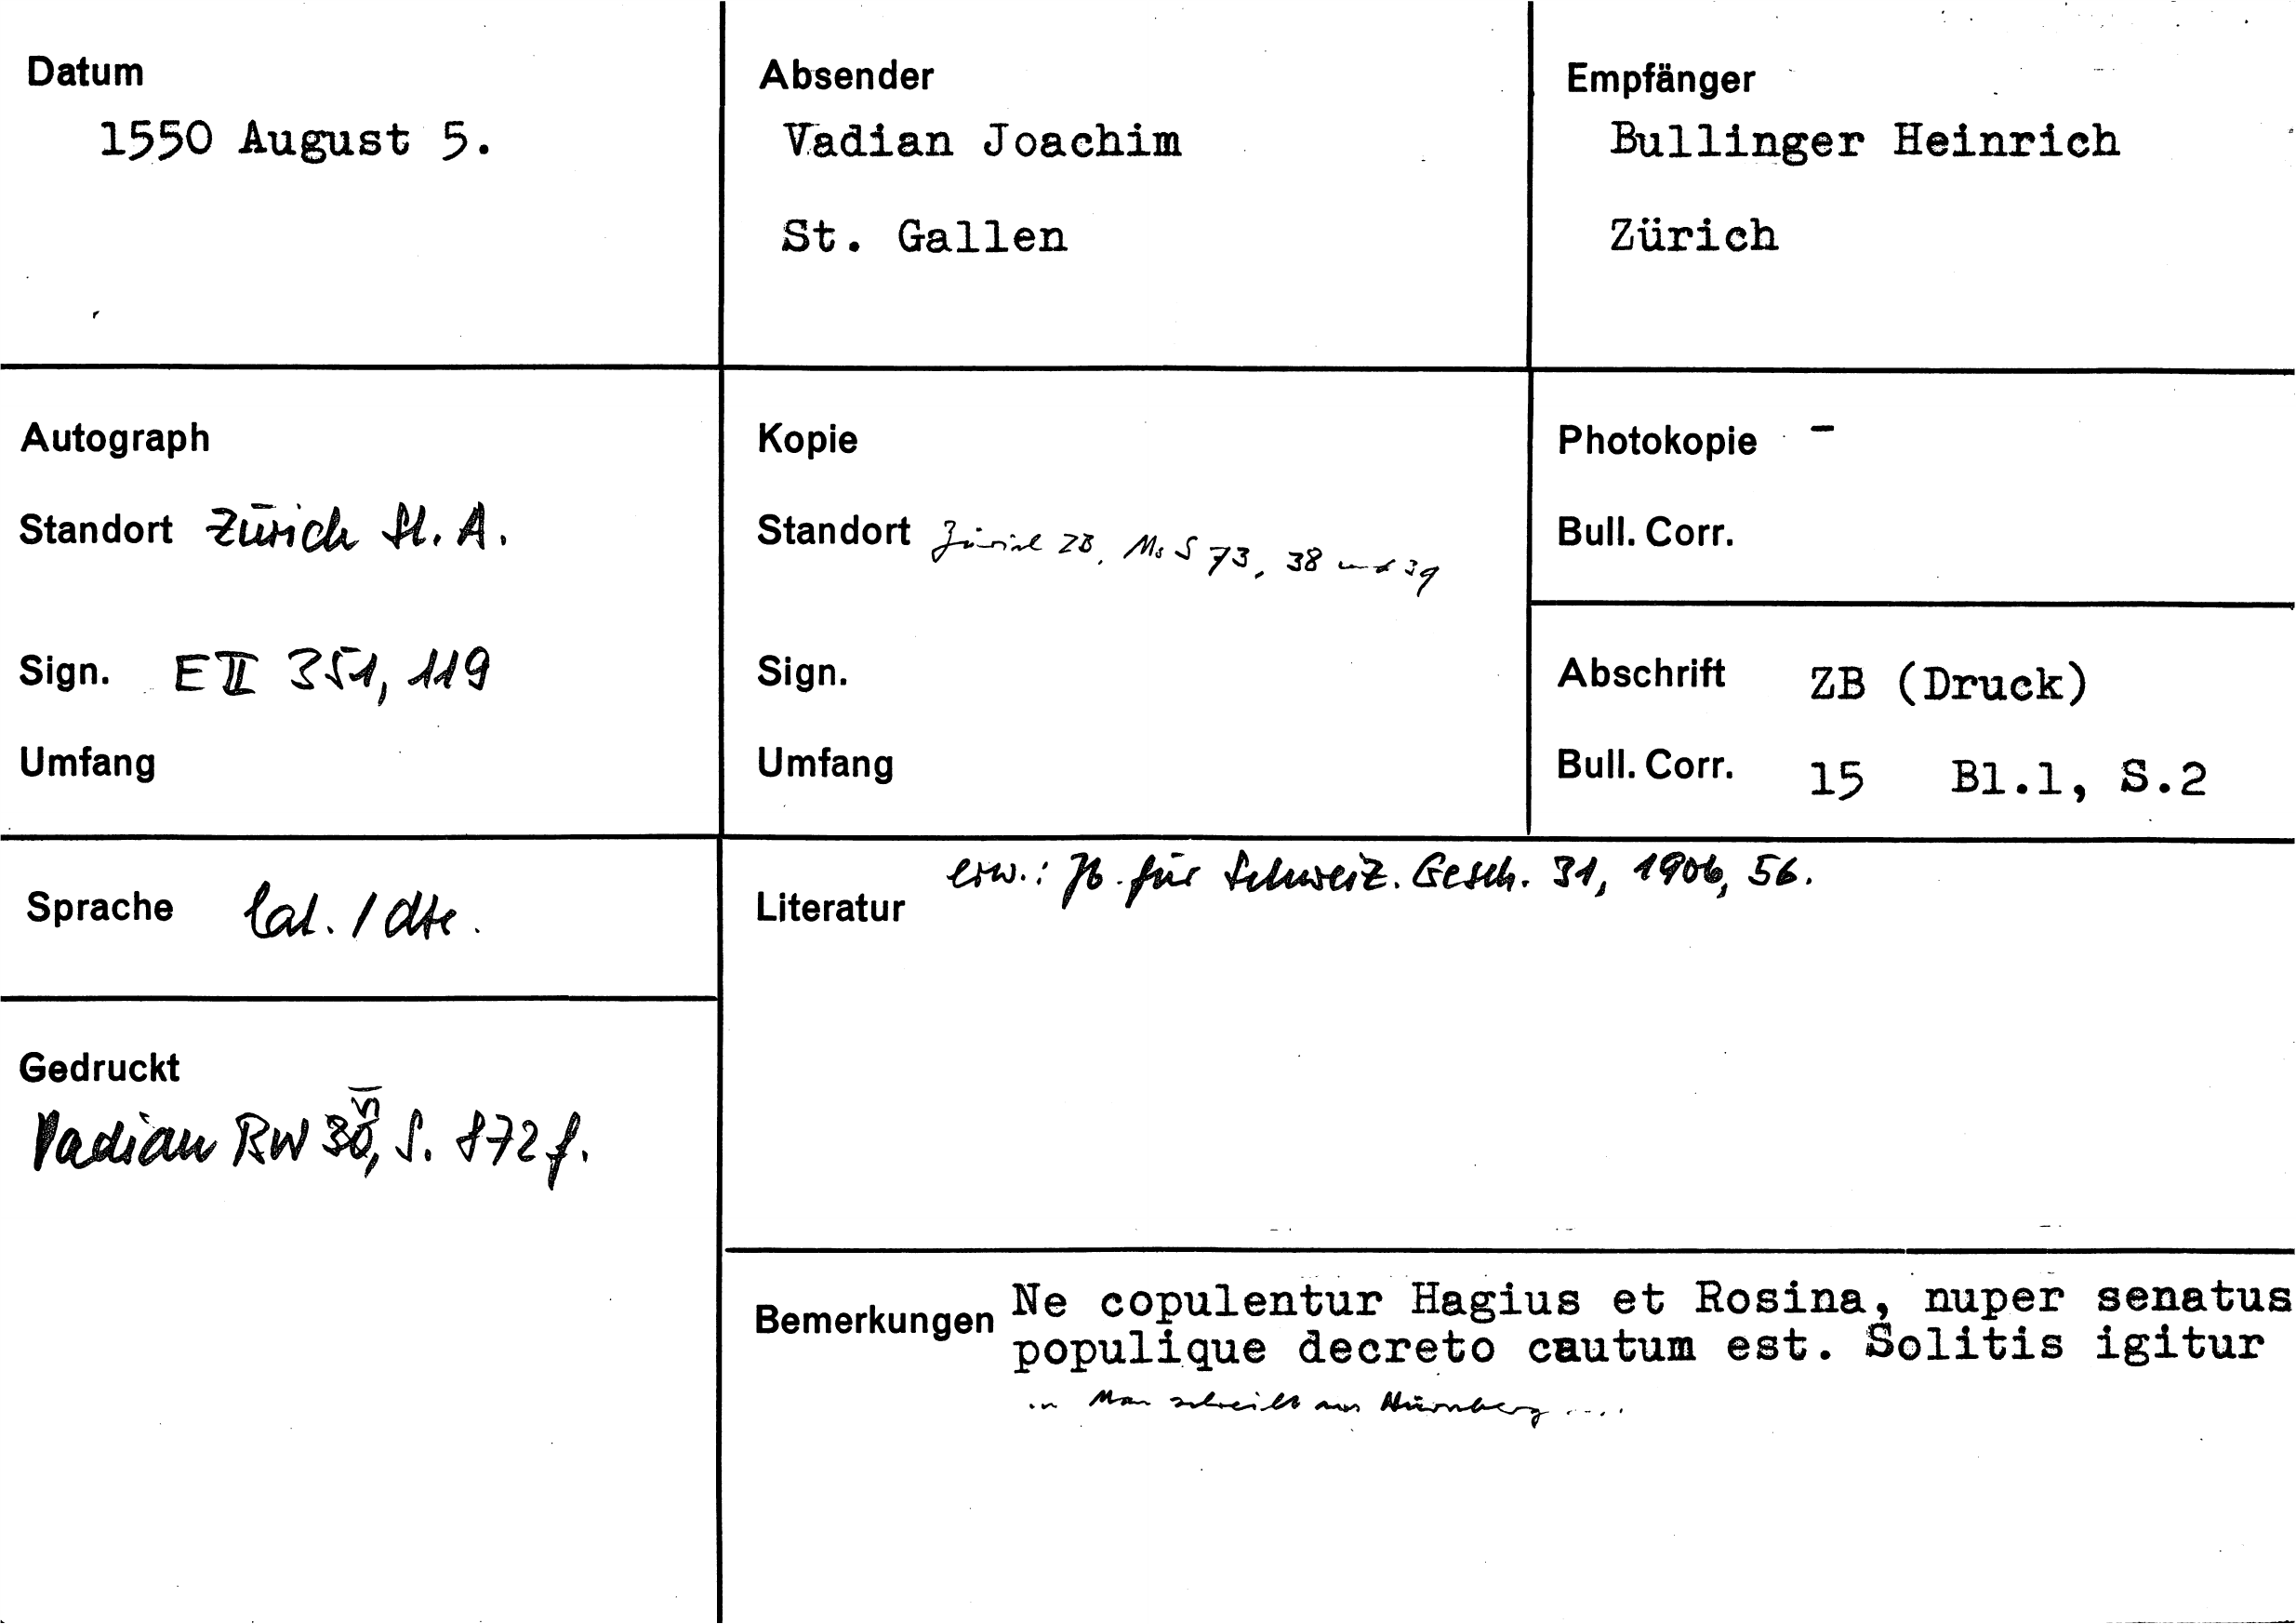 Datum
1550 August 5.
Absender
Vadian Joachim
St. Gallen
Empfänger
Bullinger Heinrich
Zürich
Autograph
Standort Zürich St. A.
Sign. E II 351, 119
Umfang
Kopie
Standort Zürich ZB, Ms S 73, 38 und 39
Sign.
Umfang
Photokopie -
Bull. Corr.
Abschrift ZB (Druck)
Bull. Corr. 15 Bl.1, S.2
Sprache lat. / dte.
Literatur erw.: Jb. für Schweiz. Gesch. 31, 1906, 56.
Gedruckt
Vadian BW VI, S. 872 f.
Bemerkungen Ne copulentur Hagius et Rosina, nuper senatus
populique decreto cautum est. Solitis igitur
... Man schreibt aus Nürnberg ....